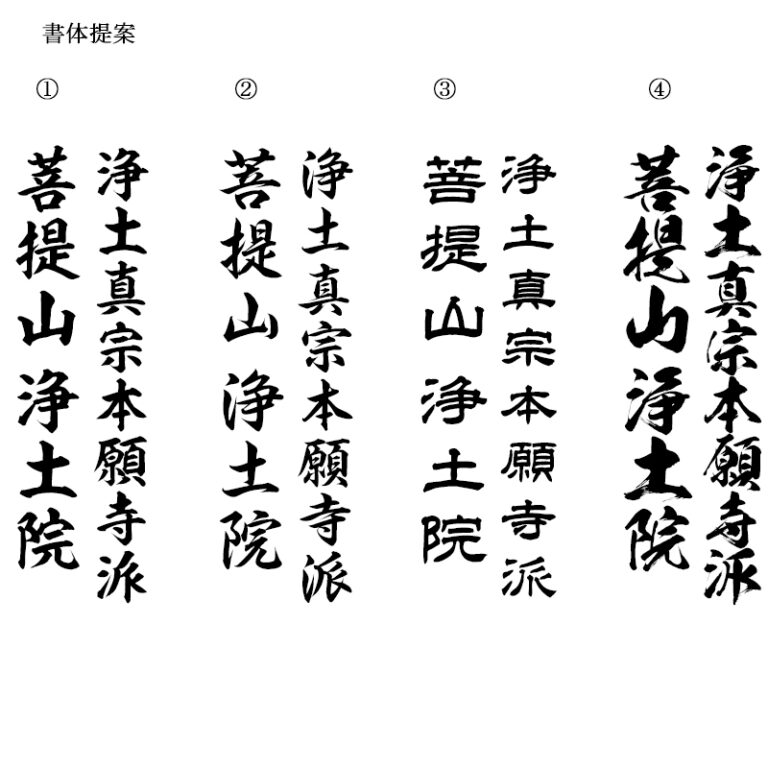 書体提案
①
浄土真宗本願寺派
菩提山浄土院
②
浄土真宗本願寺派
菩提山浄土院
③
浄土真宗本願寺派
菩提山浄土院
④
浄土真宗本願寺派
菩提山浄土院